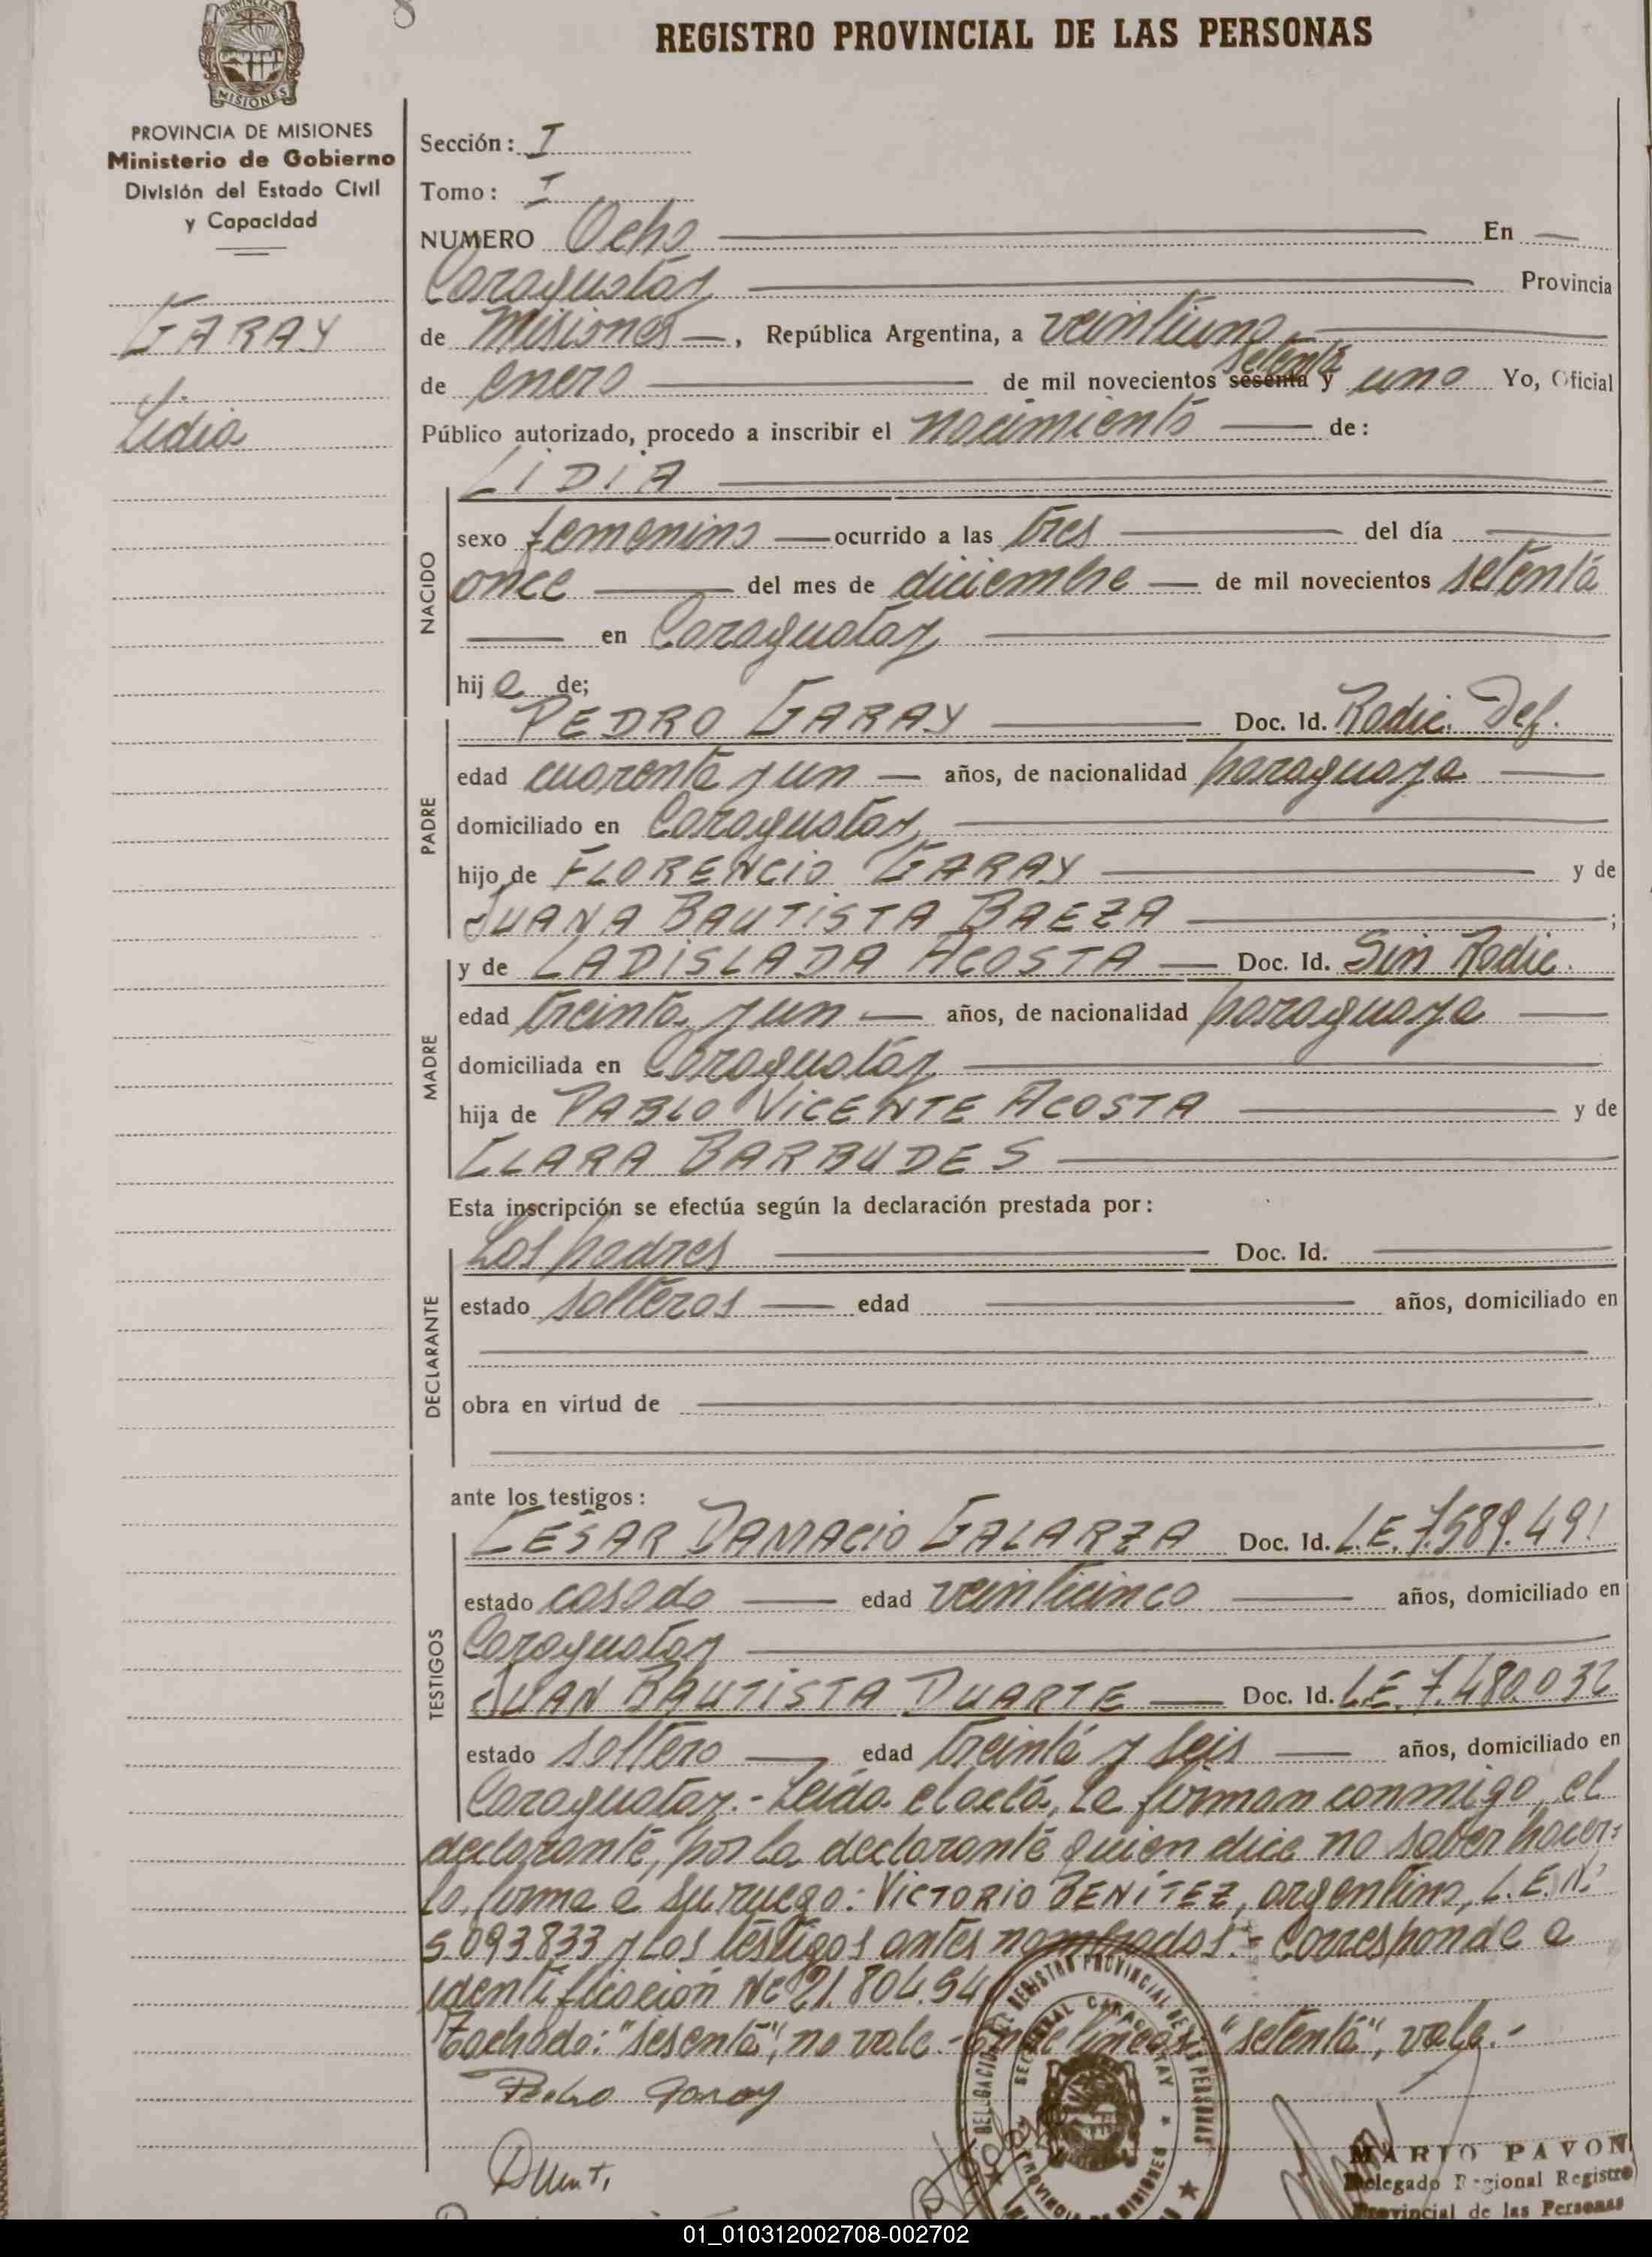 REGISTRO PROVINCIAL DE LAS PERSONAS
MISIONES
PROVINCIA DE MISIONES
Ministerio de Gobierno
División del Estado Civil
y Capacidad
GARAY
Lidia
Sección: I
Tomo: I
NUMERO Ocho En
Caraguatay Provincia
de Misiones, República Argentina, a veintiuno
setenta
de enero de mil novecientos sesenta y uno Yo, Oficial
Público autorizado, procedo a inscribir el nacimiento de:
NACIDO
LIDIA
sexo femenino ocurrido a las tres del día
once del mes de diciembre de mil novecientos setenta
en Caraguatay
hija de;
PADRE
PEDRO GARAY Doc. Id. Radic. Def.
edad cuarenta y un años, de nacionalidad paraguaya
domiciliado en Caraguatay
hijo de FLORENCIO GARAY y de
JUANA BAUTISTA BAEZA ;
MADRE
y de LADISLADA ACOSTA Doc. Id. Sin Radic.
edad treinta y un años, de nacionalidad paraguaya
domiciliada en Caraguatay
hija de PABLO VICENTE ACOSTA y de
CLARA BARBUDES
Esta inscripción se efectúa según la declaración prestada por:
DECLARANTE
Los padres Doc. Id.
estado solteros edad años, domiciliado en
obra en virtud de
ante los testigos:
TESTIGOS
CESAR DAMACIO GALARZA Doc. Id. L.E. 7.589.491
estado casado edad veinticinco años, domiciliado en
Caraguatay
JUAN BAUTISTA DUARTE Doc. Id. L.E. 7.480.032
estado soltero edad treinta y seis años, domiciliado en
Caraguatay.- Leída el acta, la firman conmigo, el
declarante, por la declarante quien dice no saber hacer-
lo, firma a su ruego: VICTORIO BENITEZ, argentino, L.E. Nº
5093833 y los testigos antes nombrados.- Corresponde a
identificación Nº 21.804.54
Tachado: "sesenta", no vale.- Entre líneas: "setenta", vale.-
Pedro Garay
MARIO PAVON
Delegado Regional Registro
Provincial de las Personas
01_010312002708-002702